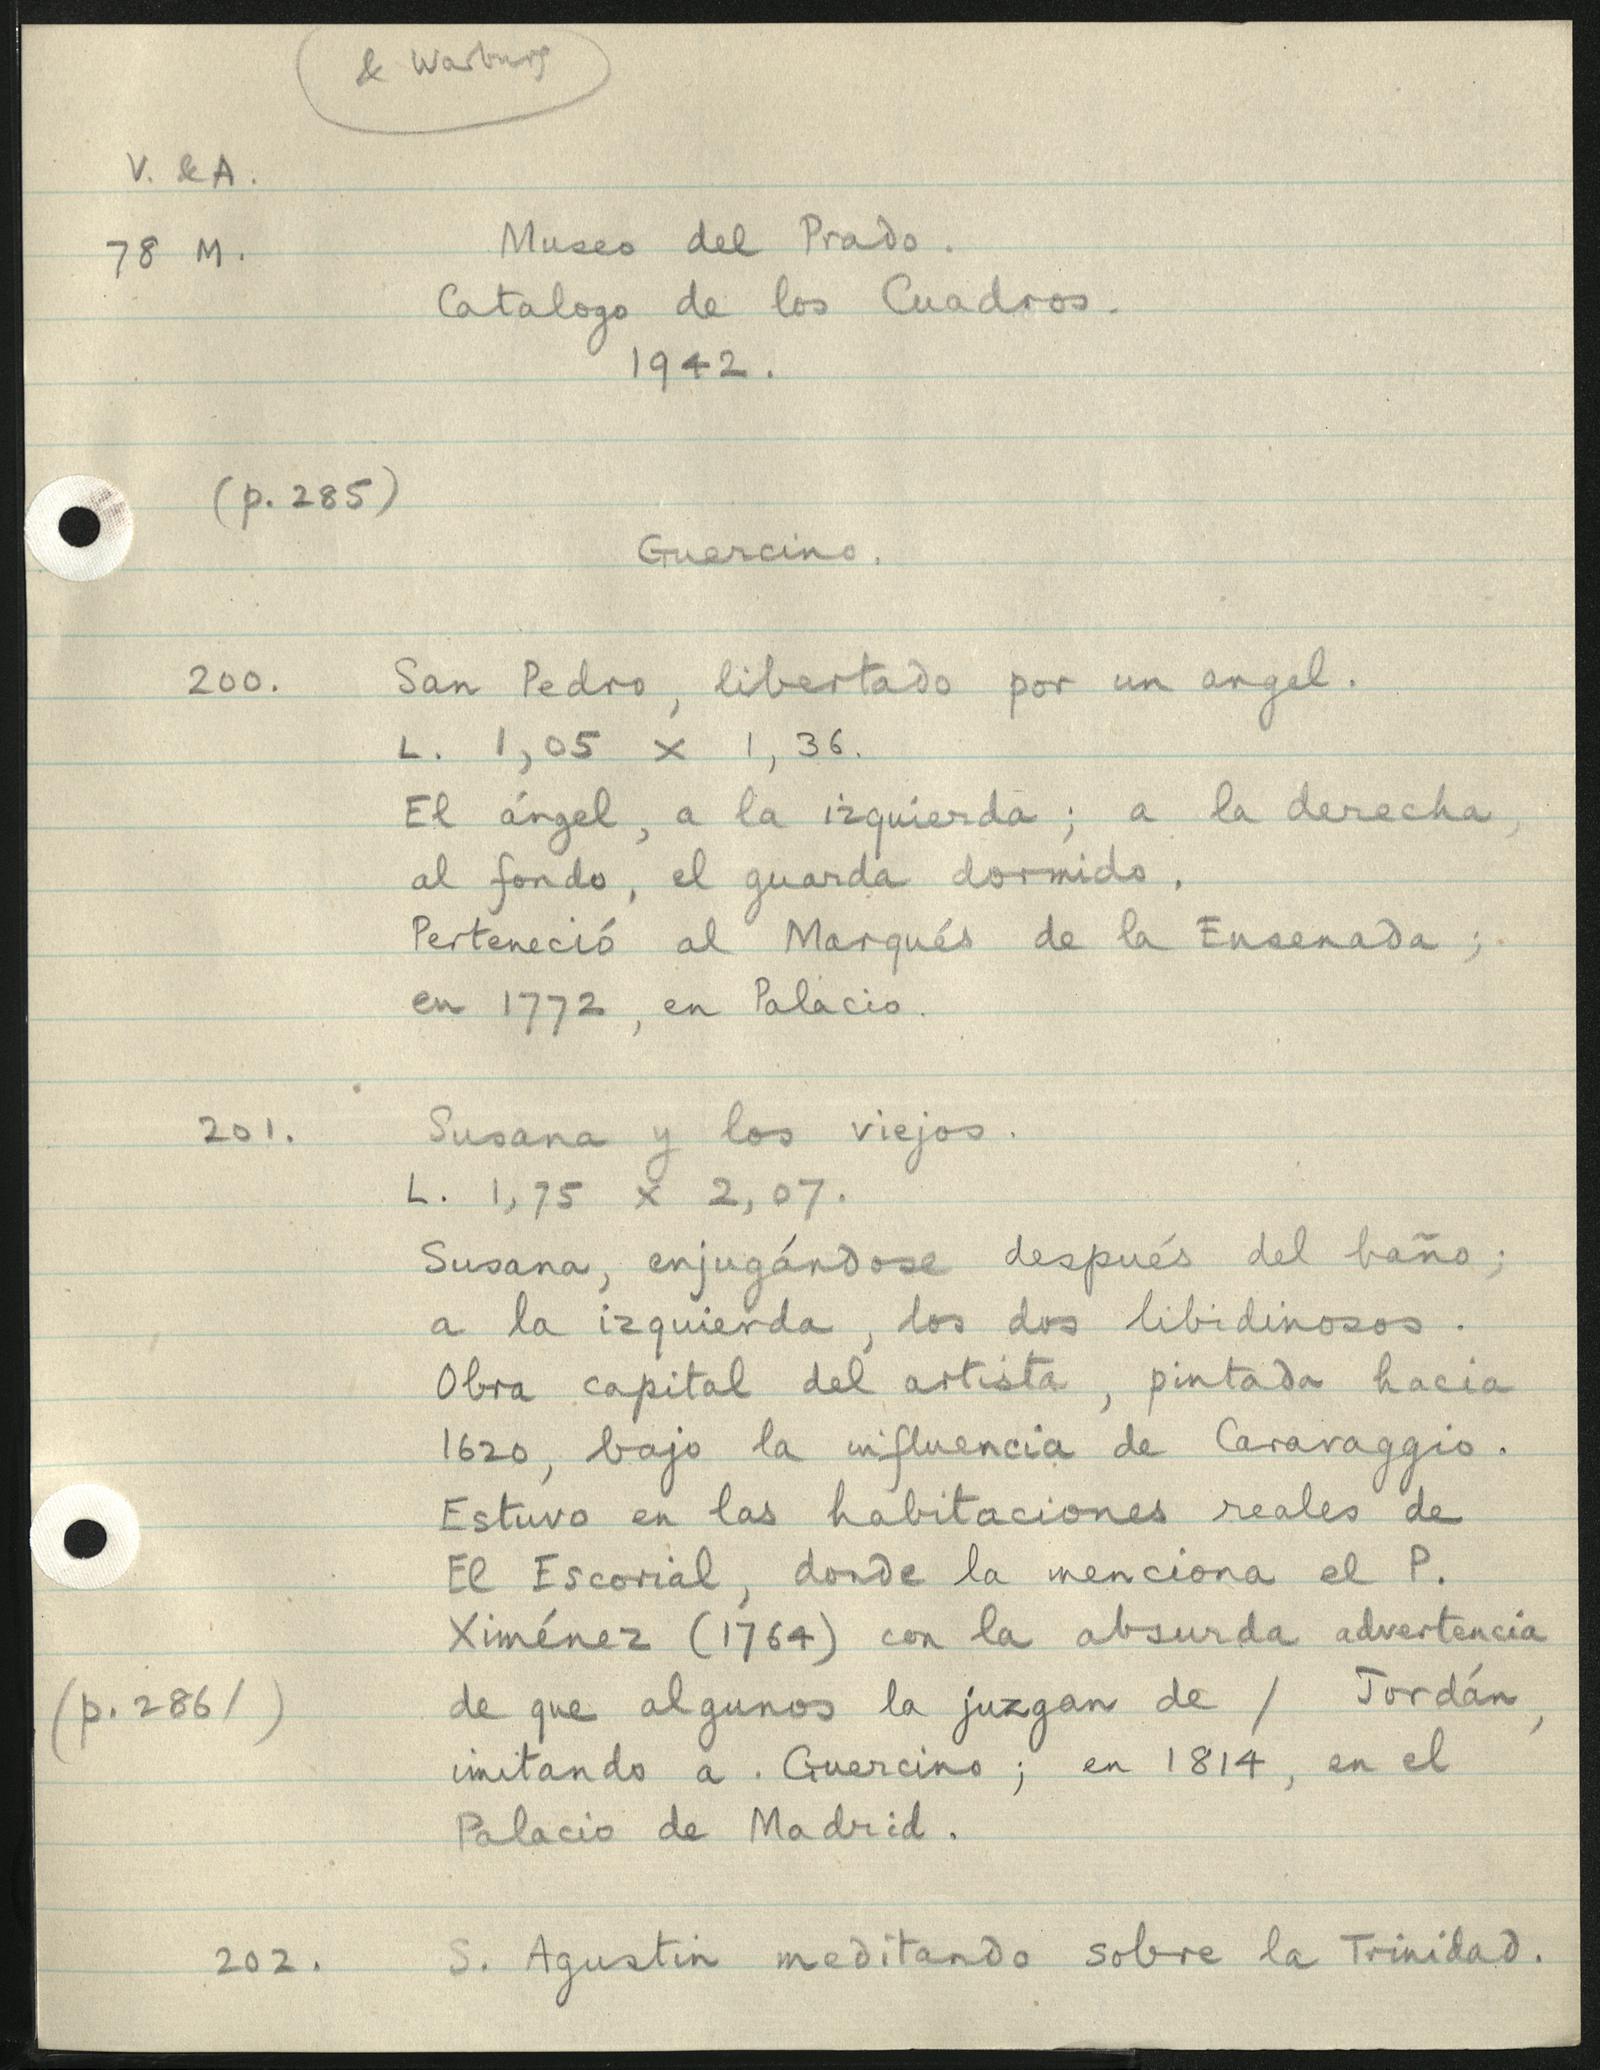 & Warburg
V. & A.
78 M.
Museo del Prado.
Catalogo de los Cuadros.
1942.
(p. 285)
Guercino.
200. San Pedro, libertado por un angel.
L. 1,05 x 1,36.
El ángel, a la izquierda; a la derecha,
al fondo, el guarda dormido.
Perteneció al Marqués de la Ensenada;
en 1772, en Palacio.
201. Susana y los viejos.
L. 1,75 x 2,07.
Susana, enjugándose después del baño;
a la izquierda, los dos libidinosos.
Obra capital del artista, pintada hacia
1620, bajo la influencia de Caravaggio.
Estuvo en las habitaciones reales de
El Escorial, donde la menciona el P.
Ximénez (1764) con la absurda advertencia
(p. 286/) de que algunos la juzgan de / Jordán,
imitando a . Guercino; en 1814, en el
Palacio de Madrid.
202. S. Agustin meditando sobre la Trinidad.